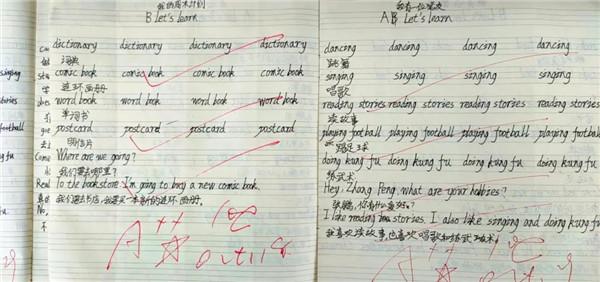 我的周末计划
B Let's learn
dictionary dictionary dictionary dictionary
词典
comic book comic book comic book comic book
连环画册
word book word book word book word book
单词书
postcard postcard postcard postcard
明信片
Where are we going?
我们要去哪里?
To the bookstore. I'm going to buy a new comic book.
A++
AB Let's learn
dancing dancing dancing dancing
跳舞
singing singing singing singing
唱歌
reading stories reading stories reading stories reading stories
读故事
playing football playing football playing football playing football
踢足球
doing kung fu doing kung fu doing kung fu doing kung fu
练武术
Hey, Zhang Peng, what are your hobbies?
张鹏,你有什么爱好?
I like reading stories. I also like singing and doing kung fu
我喜欢读故事,也喜欢唱歌和练武术
A++